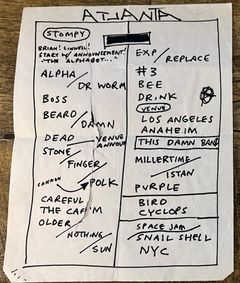 ATLANTA
STOMPY
BRIAN! LINNELL!
START W/ ANNOUNCEMENT!
"THE ALPHABET..."
ALPHA/
DR WORM
BOSS
BEARD/
DAMN
DEAD
VENUE
ANNOUN
STONE/
FINGER/
CANNON
POLK
CAREFUL
THE CAP'M
OLDER/
NOTHING/
SUN
EXP/
REPLACE
#3
BEE
DRINK
VENUE
LOS ANGELES
ANAHEIM
THIS DAMN BAND
MILLERTIME/
ISTAN
PURPLE
BIRD
CYCLOPS
SPACE JAM/
SNAIL SHELL
NYC